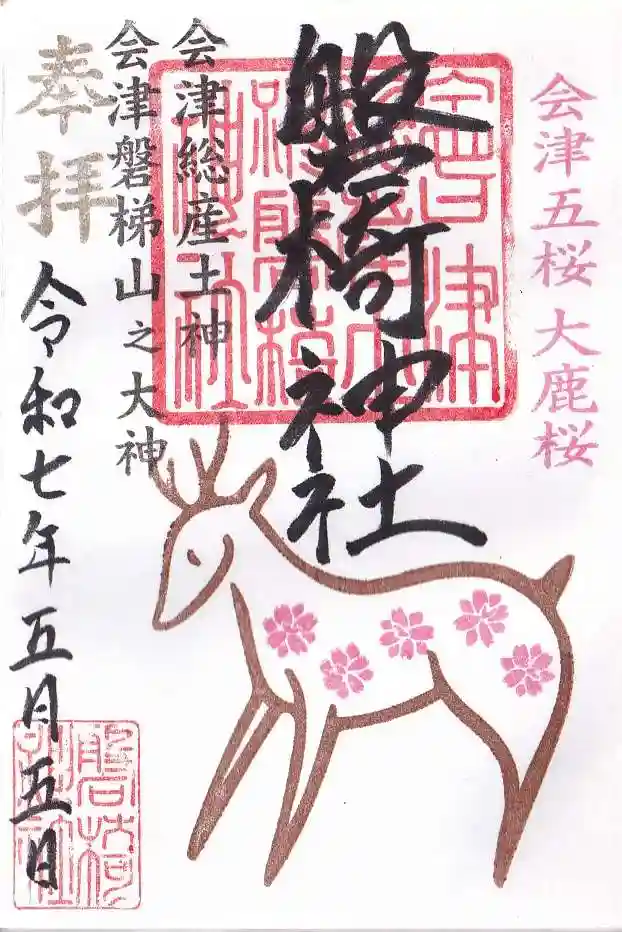 会津五桜 大鹿桜
磐椅神社
会津総産土神
会津磐梯山之大神
奉拝
令和七年五月五日
磐椅
神社